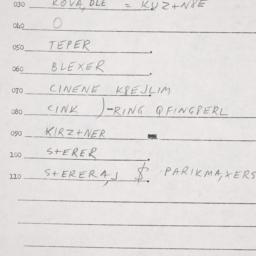 030 KOVA, DLE = KUZ+NSE
040 O
050 TEPER.
060 BLEXER.
070 CINENE KSEJLIM
080 CINK )-RING QFINGSERL
090 KIRZ+NER
100 S+ERER.
110 S+ERERA,J $ PARIKMA,XERS